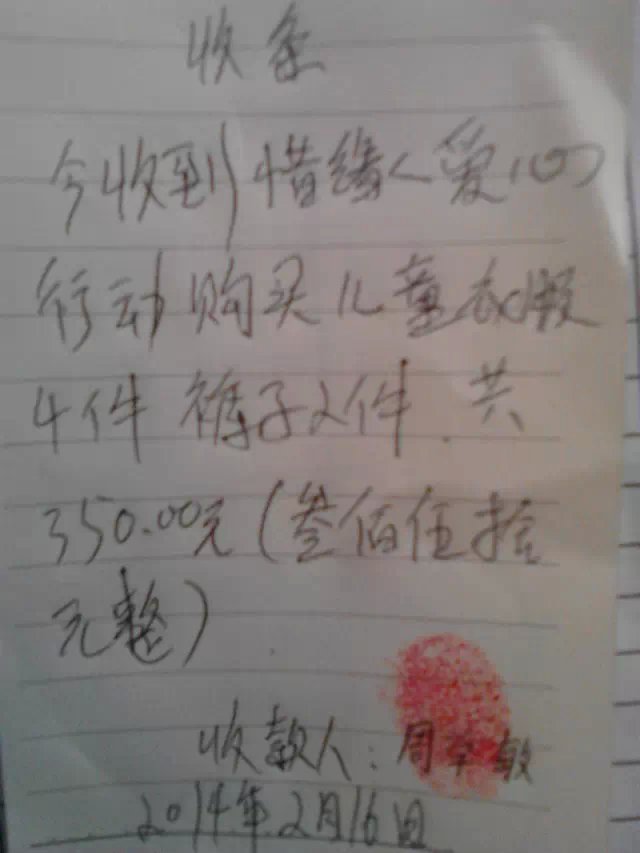 收条
今收到惜缘人爱心
行动购买儿童衣服
4件 裤子2件.共
350.00元(叁佰伍拾
元整)
收款人:周 敏
2014年2月16日